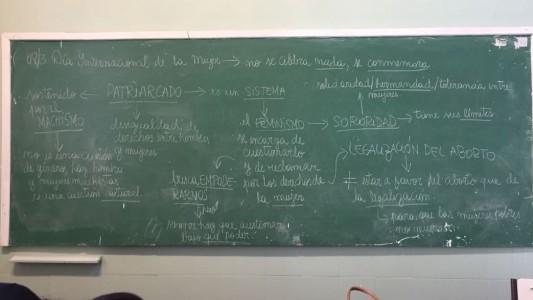 08/3 Día Internacional de la Mujer → no se celebra nada, se conmemora
sostenido ← PATRIARCADO → es un SISTEMA
solidaridad/hermandad/tolerancia entre
mujeres
por el
MACHISMO
desigualdad de
derechos entre hombres
y mujeres
el FEMINISMO → SORORIDAD → tiene sus límites
se encarga de
cuestionarlo
y de reclamar
por los derechos de
la mujer
no es una cuestión
de género, hay hombres
y mujeres machistas
es una cuestión cultural
busca EMPODE-
RARNOS
siempre hay que cuestionar
poder
LEGALIZACIÓN DEL ABORTO
≠ estar a favor del aborto que de
la legalización
↳ para que las mujeres pobres
no mueran